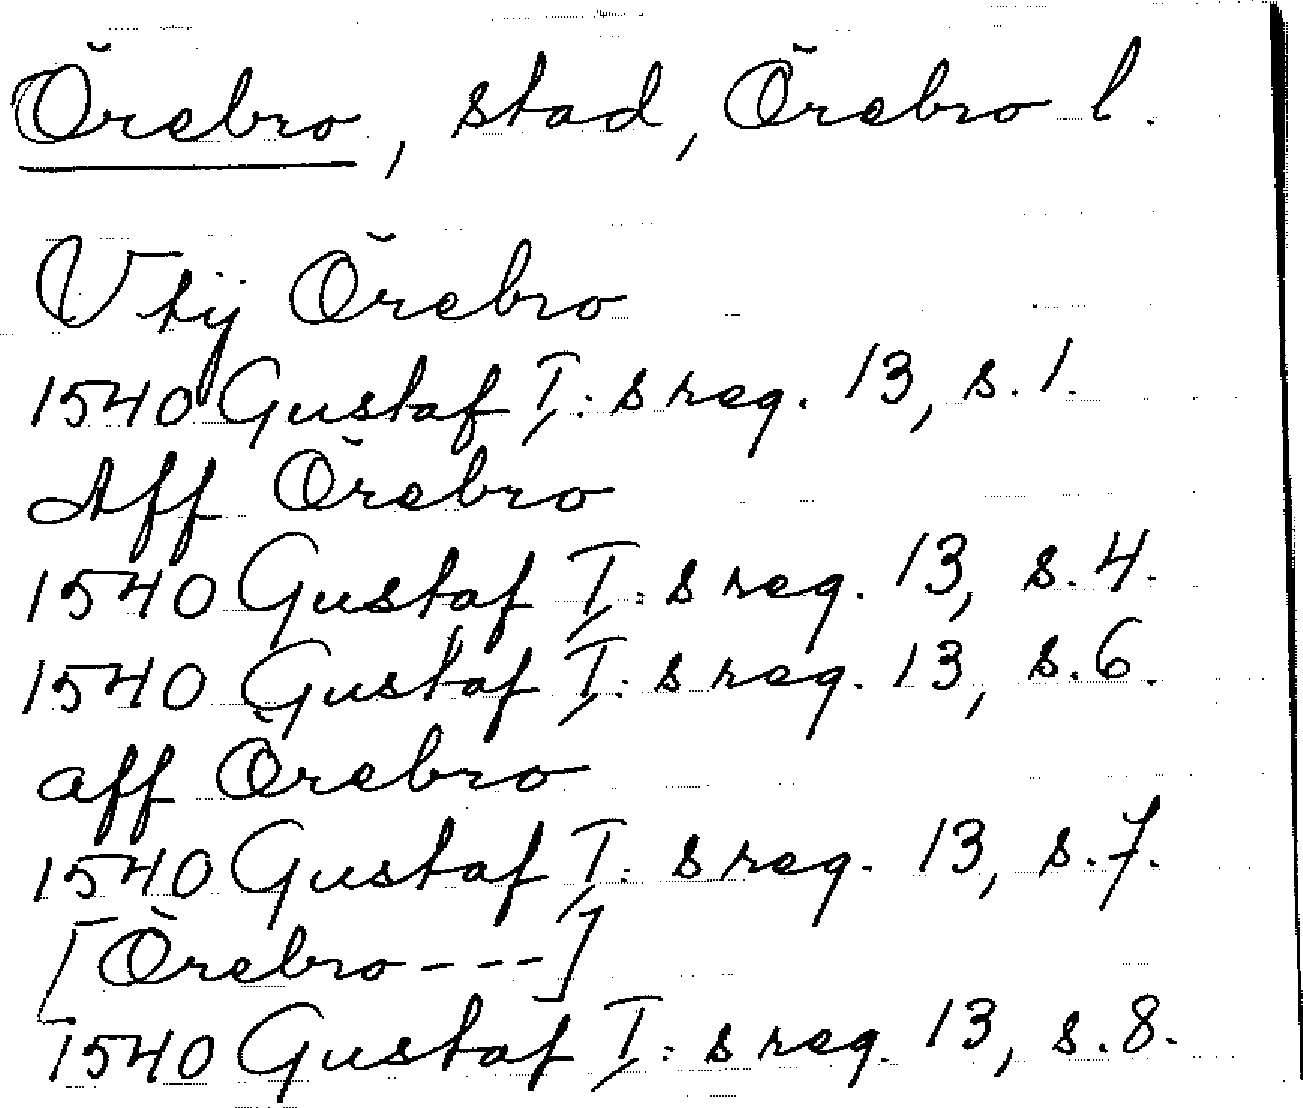 Örebro, stad, Örebro l.
Vtij Örebro
1540 Gustaf I:s reg. 13, s. 1.
Aff Örebro
1540 Gustaf I:s reg. 13, s. 4.
1540 Gustaf I:s reg. 13, s. 6.
aff Örebro
1540 Gustaf I:s reg. 13, s. 7.
[Örebro ---]
1540 Gustaf I:s reg. 13, s. 8.